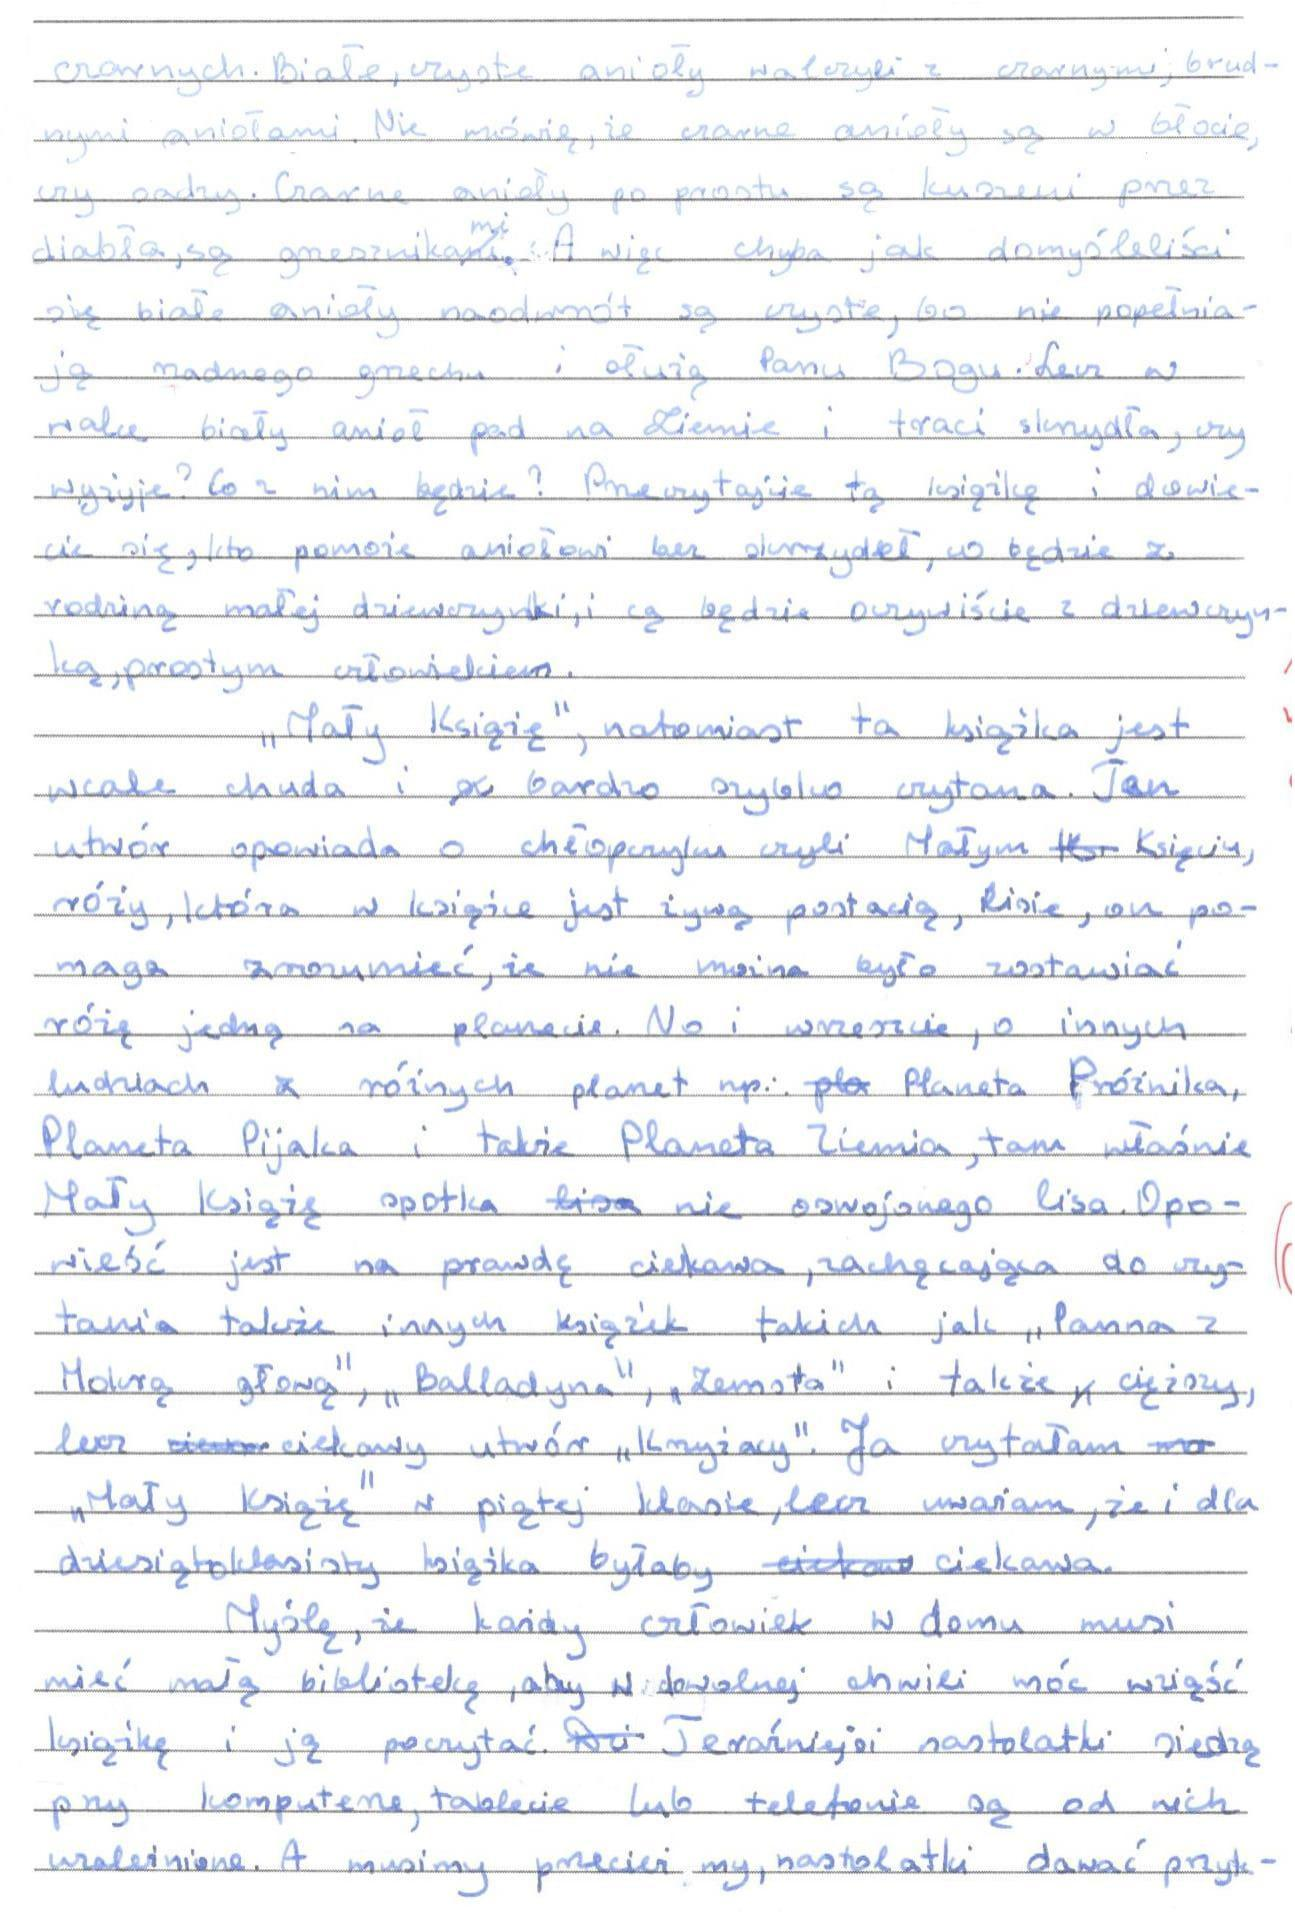 czarnych. Białe, czyste anioły walczyli z czarnymi, brud-
nymi aniołami. Nie mówię, że czarne anioły są w błocie,
czy sadzy. Czarne anioły po prostu są kuszeni przez
diabła, są grzesznikami. A więc chyba jak domyśleliści
się białe anioły naodwrót są czyste, bo nie popełnia-
ją żadnego grzechu i służą Panu Bogu. Lecz w
walce biały anioł pad na Ziemie i traci skrzydła, czy
wyżyje? Co z nim będzie? Przeczytajcie tą książkę i dowie-
cie się, kto pomoże aniołowi bez skrzydeł, co będzie z
rodziną małej dziewczynki, i cą będzie oczywiście z dziewczyn-
ką, prostym człowiekiem.
„Mały Książę", natomiast ta książka jest
wcale chuda i bardzo szybko czytana. Ten
utwór opowiada o chłopczyku czyli Małym Księciu,
róży, która w książce jest żywą postacią, lisie, on po-
maga zrozumieć, że nie można było zostawiać
różę jedną na planecie. No i wreszcie, o innych
ludziach z różnych planet np.: Planeta Próżnika,
Planeta Pijaka i także Planeta Ziemia, tam właśnie
Mały Książę spotka nie oswojonego lisa. Opo-
wieść jest na prawdę ciekawa, zachęcająca do czy-
tania także innych książek takich jak „Panna z
Mokrą głową", „Balladyna", „Zemsta" i także cięższy,
lecz ciekawy utwór „Krzyżacy". Ja czytałam
„Mały Książę" w piątej klasie, lecz uważam, że i dla
dziesiątoklasisty książka byłaby ciekawa.
Myślę, że każdy człowiek w domu musi
mieć małą bibliotekę, aby w dowolnej chwili móc wziąść
książkę i ją poczytać. Teraźniejsi nastolatki siedzą
przy komputerze, tablecie lub telefonie są od nich
uzależnione. A musimy przecież my, nastolatki dawać przyk-